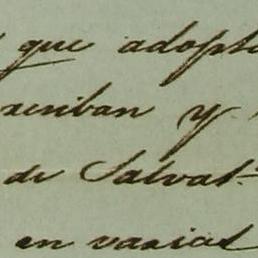 que adopt
scriban y
de Salvat.
en varias